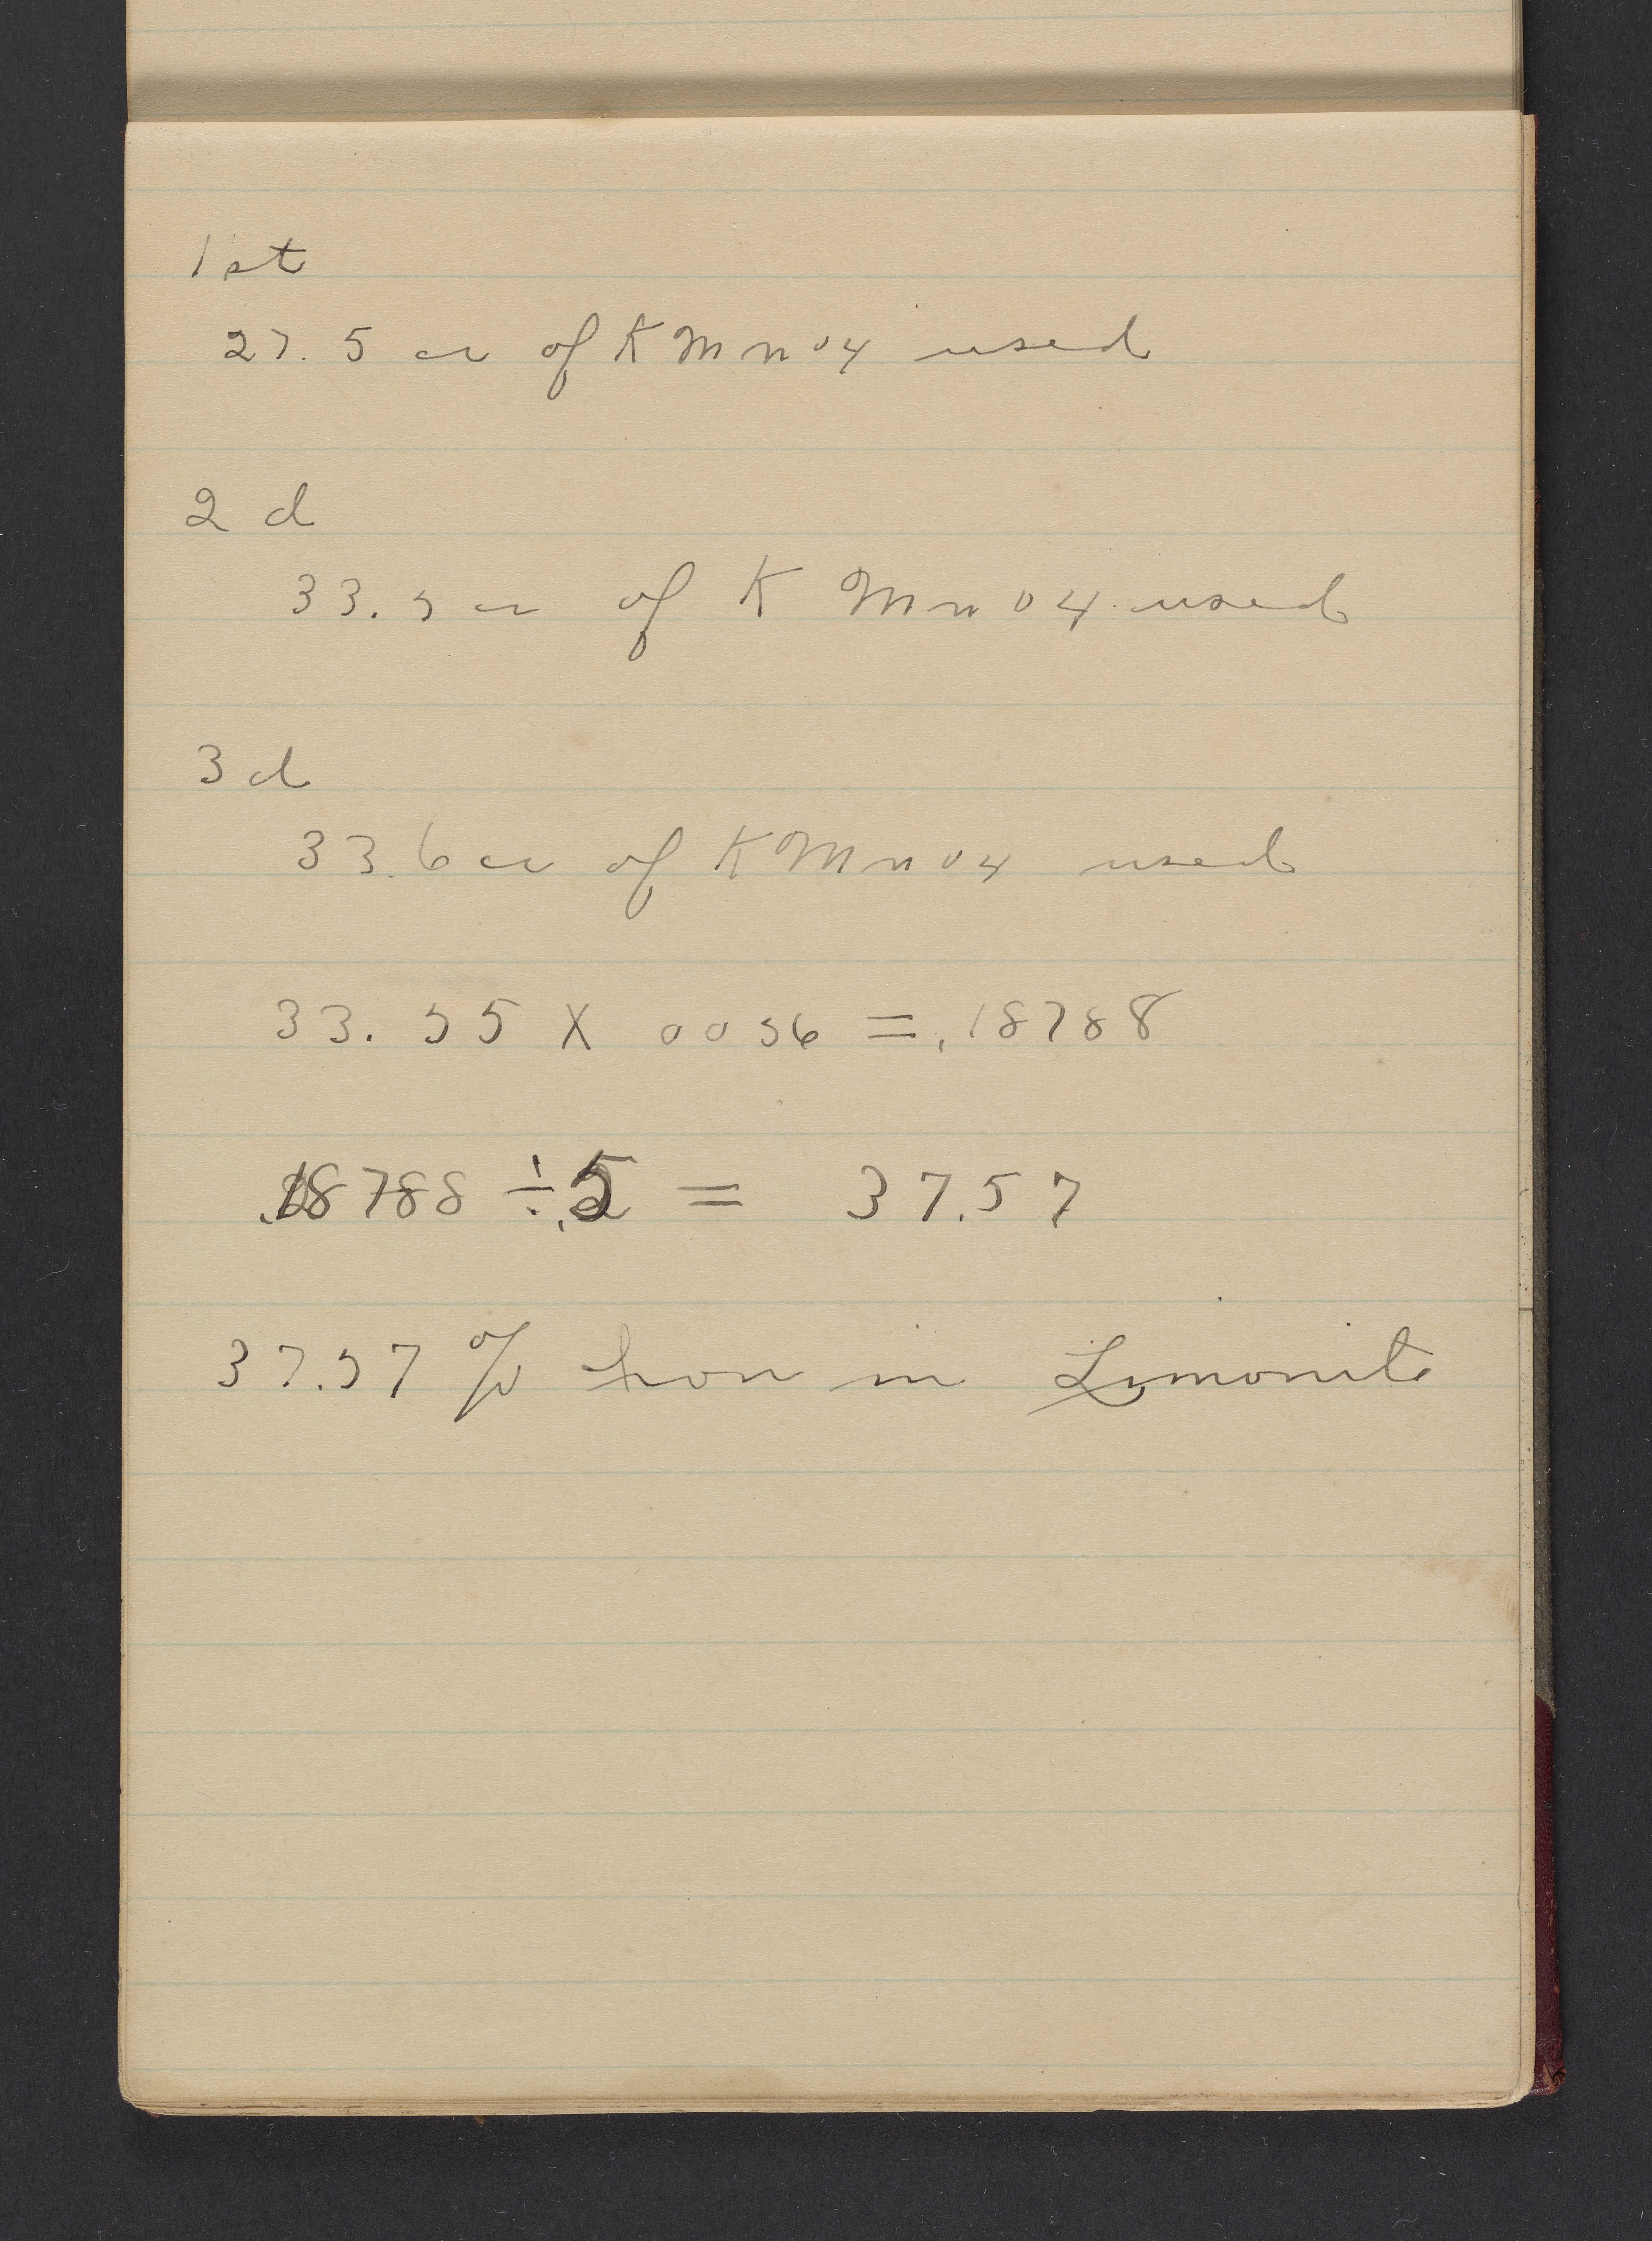 1st
27.5 cc of KMnO4 used
2d
33.5 cc of KMnO4 used
3d
33.6 cc of KMnO4 used
33.55 X 0056 = .18788
.18788 ÷ .5 = 37.57
37.57 % Iron in Limonite